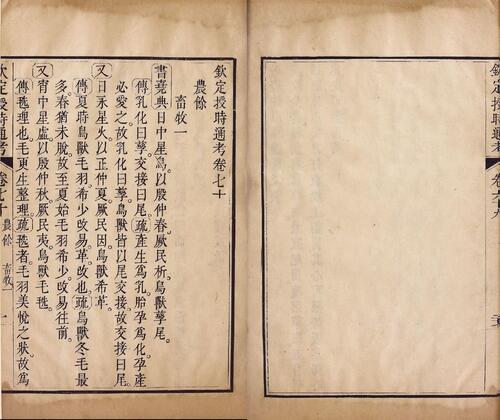 欽定授時通考
欽定授時通考卷七十
農餘
畜牧一
書堯典日中星鳥。以殷仲春。厥民析。鳥獸孳尾。
傳乳化曰孳。交接曰尾。疏產生為乳。胎孕為化。孕產
必愛之。故乳化曰孳。鳥獸皆以尾交接。故交接曰尾。
又日永星火。以正仲夏。厥民因。鳥獸希革。
傳夏時鳥獸毛羽。希少改易。革改也。疏鳥獸冬毛最
多。春猶未脫。故至夏始毛羽希少。改易往前。
又宵中星虛。以殷仲秋。厥民夷。鳥獸毛毨。
傳毨理也。毛更生整理。疏毨者。毛羽美悅之狀。故為
欽定授時通考 卷七十 農餘 畜牧一 一